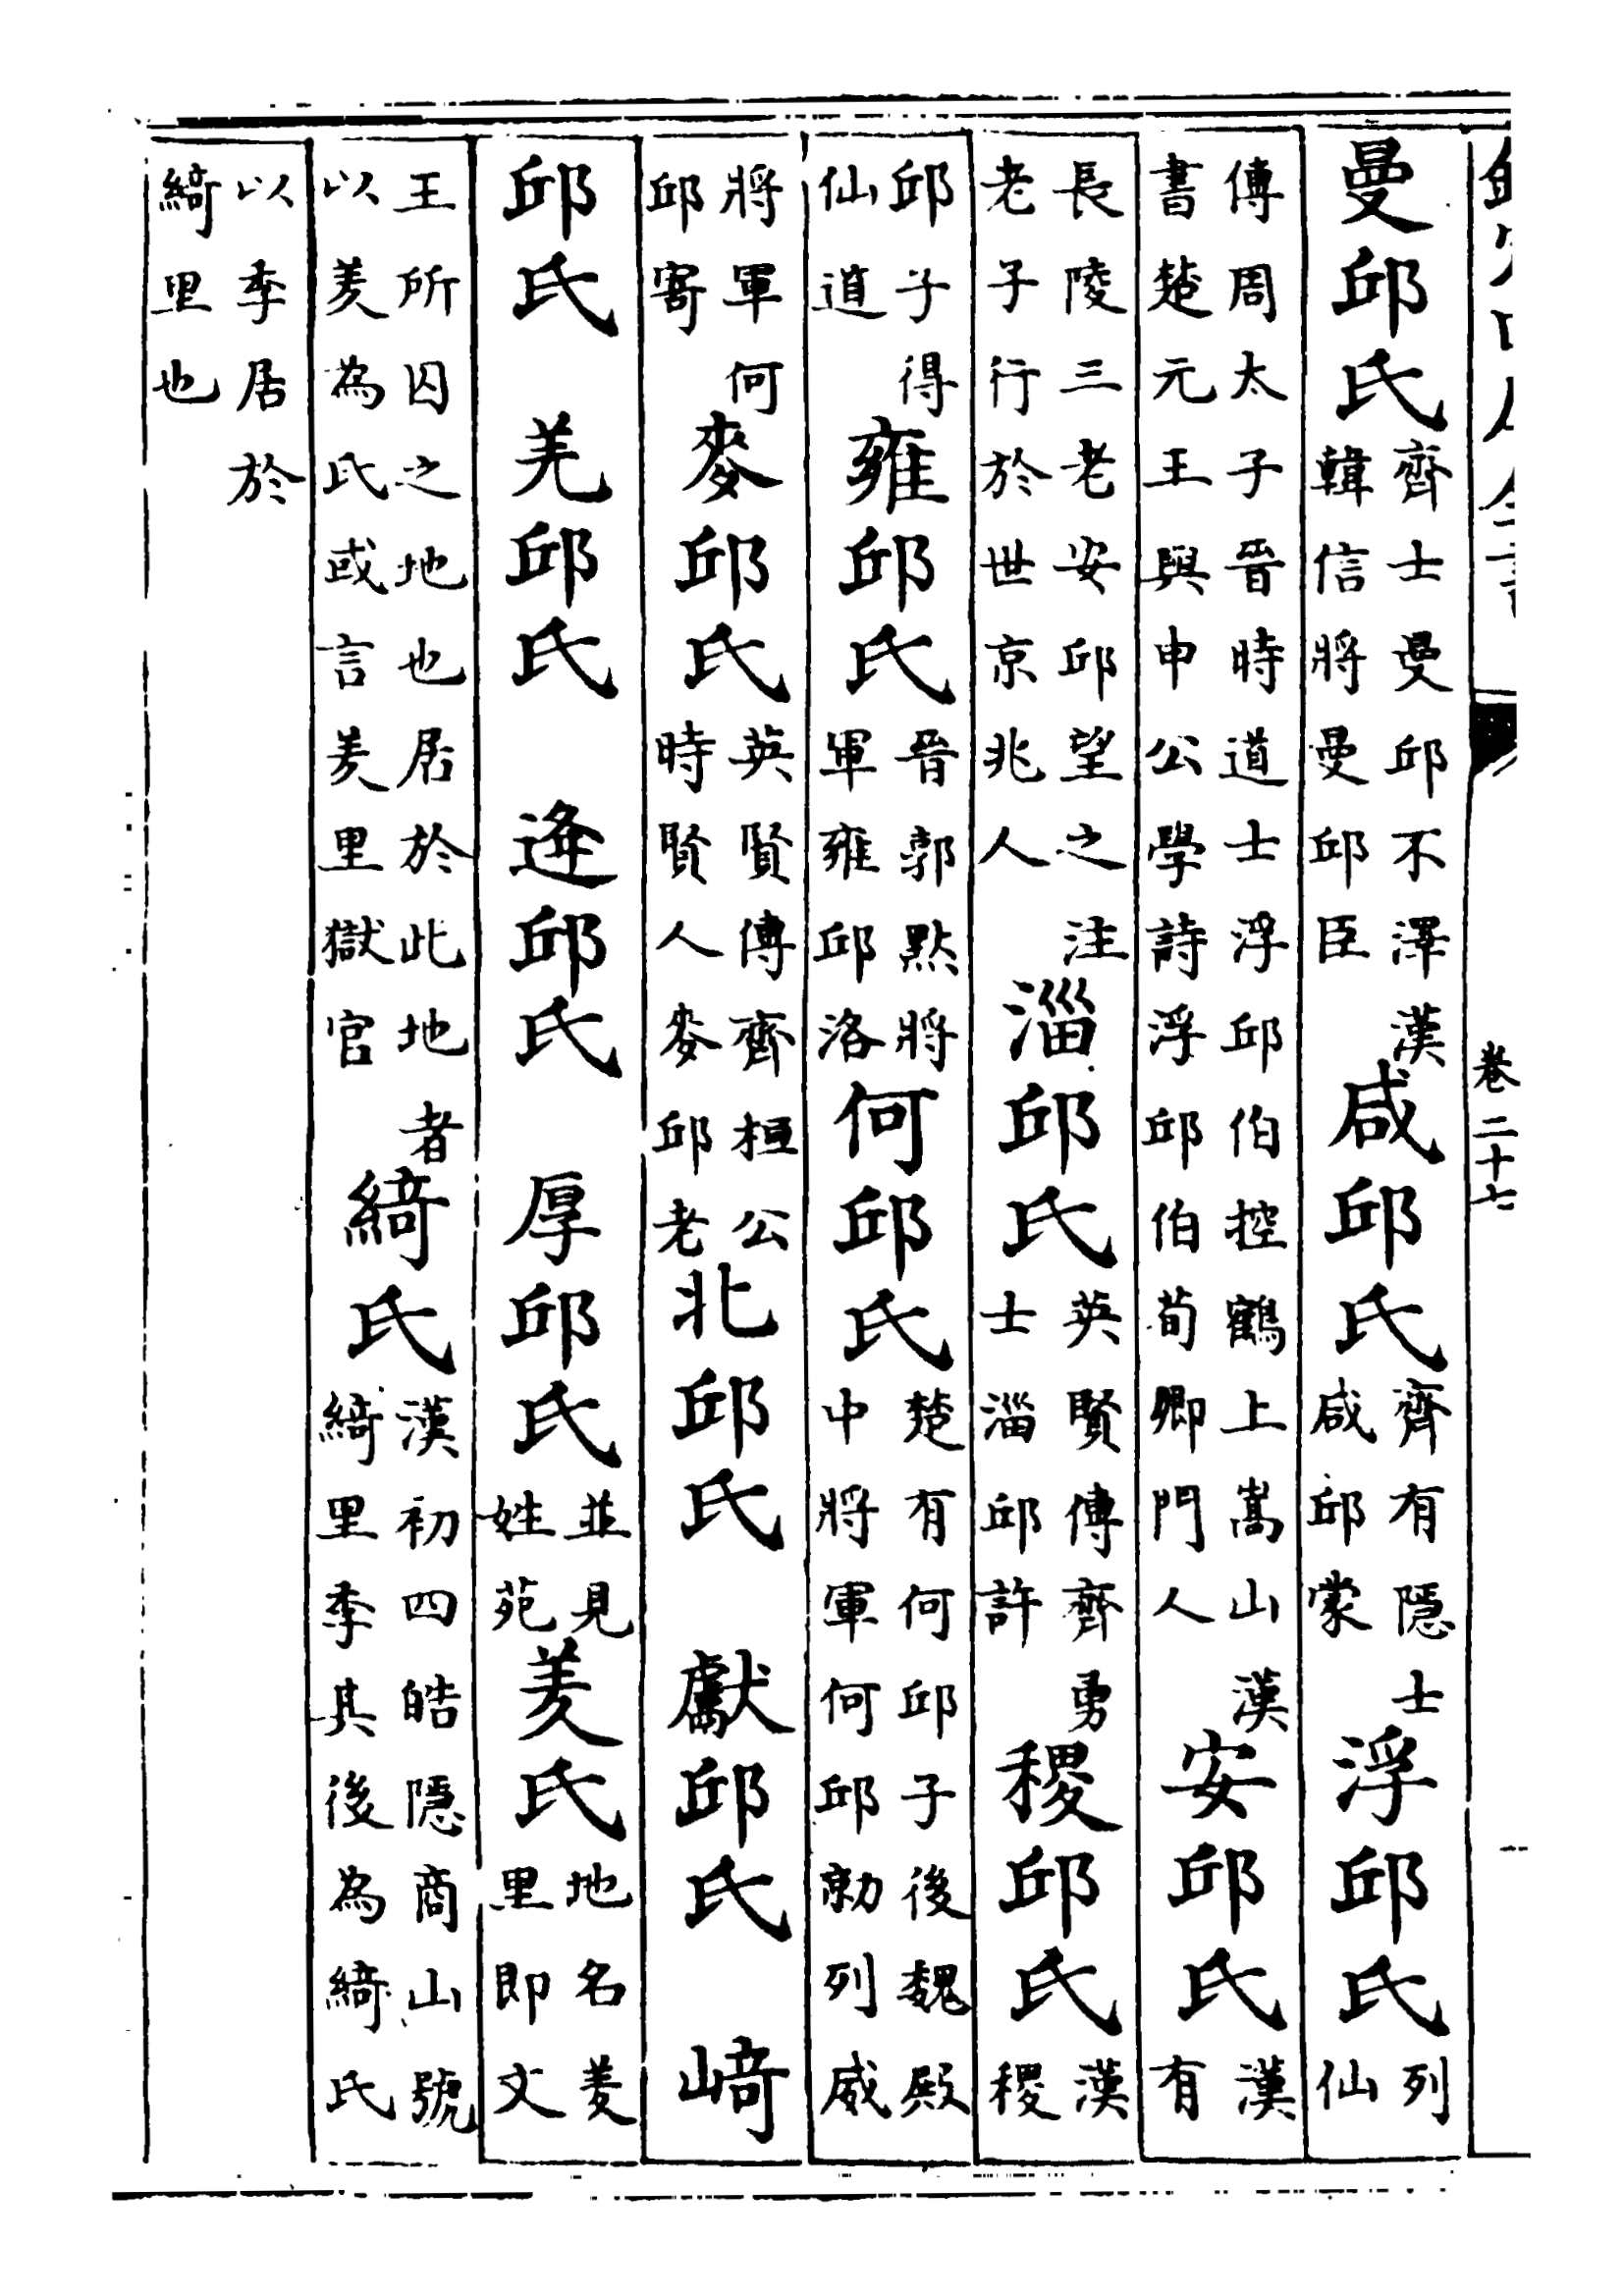 卷二十七
曼邱氏齊士曼邱不澤漢韓信將曼邱臣咸邱氏齊有隱士咸邱蒙浮邱氏列仙
傳周太子晉時道士浮邱伯控鶴上嵩山漢書楚元王與申公學詩浮邱伯荀卿門人安邱氏漢有
長陵三老安邱望之注老子行於世京兆人淄邱氏英賢傳齊勇士淄邱許稷邱氏漢稷
邱子得仙道雍邱氏晉郭黙將軍雍邱洛何邱氏楚有何邱子後魏殿中將軍何邱勑列威
將軍何邱寄麥邱氏英賢傳齊桓公時賢人麥邱老北邱氏 獻邱氏 崎
邱氏 羌邱氏 逄邱氏 厚邱氏並見姓苑羑氏地名羑里即文
王所囚之地也居於此地者以羑為氏或言羑里獄官綺氏漢初四皓隱商山號綺里季其後為綺氏
以季居於綺里也